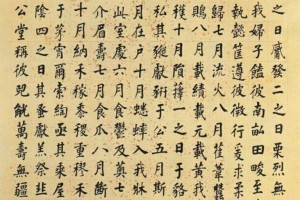 之日觱發二之日栗烈無
我婦子饁彼南畝田畯至
執懿筐遵彼微行爰求柔
歸七月流火八月萑葦蠶
鵙八月載績載玄載黃我
穫十月隕蘀一之日于貉
私其豵獻豜于公五月斯
月在戶十月蟋蟀入我牀
此室處六月食鬱及薁七
壽七月食瓜八月斷
十月納禾稼黍稷重穋禾
于茅宵爾索綯亟其乘屋
陰四之日其蚤獻羔祭韭
公堂稱彼兕觥萬壽無疆